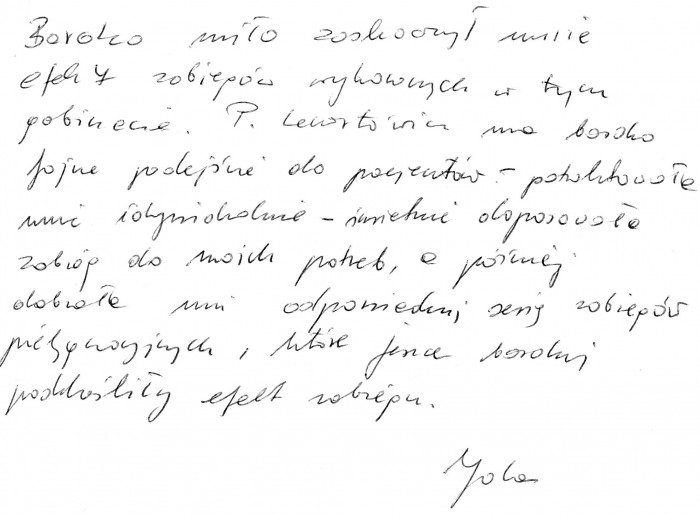 Bardzo miło zaskoczył mnie
efekt zabiegów wykonanych w tym
gabinecie. P. Lewartowicz ma bardzo
fajne podejście do pacjentów - potraktowała
mnie indywidualnie - świetnie dopasowała
zabieg do moich potrzeb, a później
dobrała mi odpowiednią serię zabiegów
pielęgnacyjnych, które jeszcze bardziej
podkreśliły efekt zabiegu.
Jola